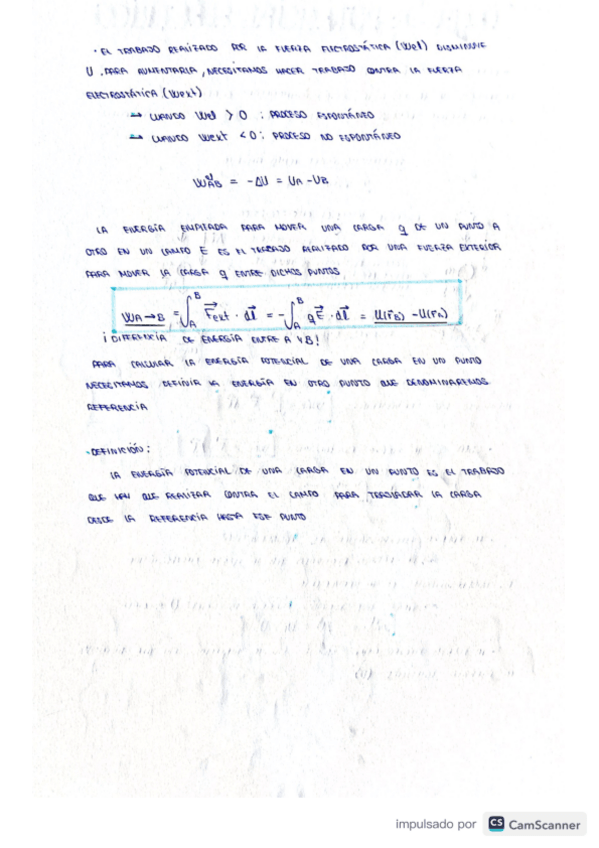 · EL TRABAJO REALIZADO POR LA FUERZA ELECTROSTÁTICA (Wel) DISMINUYE
U. PARA AUMENTARLA, NECESITAMOS HACER TRABAJO CONTRA LA FUERZA
ELECTROSTÁTICA (Wext)
→ CUANDO Wel > 0 : PROCESO ESPONTÁNEO
→ CUANDO Wext < 0 : PROCESO NO ESPONTÁNEO
W^{el}_{AB} = -ΔU = U_A - U_B
LA ENERGÍA EMPLEADA PARA MOVER UNA CARGA q DE UN PUNTO A
OTRO EN UN CAMPO E ES EL TRABAJO REALIZADO POR UNA FUERZA EXTERIOR
PARA MOVER LA CARGA q ENTRE DICHOS PUNTOS
W_{A→B} = ∫_A^B F⃗_{ext} · dl⃗ = -∫_A^B qE⃗ · dl⃗ = U(r⃗_B) - U(r⃗_A)
¡DIFERENCIA DE ENERGÍA ENTRE A Y B!
PARA CALCULAR LA ENERGÍA POTENCIAL DE UNA CARGA EN UN PUNTO
NECESITAMOS DEFINIR LA ENERGÍA EN OTRO PUNTO QUE DENOMINAREMOS
REFERENCIA
· DEFINICIÓN :
LA ENERGÍA POTENCIAL DE UNA CARGA EN UN PUNTO ES EL TRABAJO
QUE HAY QUE REALIZAR CONTRA EL CAMPO PARA TRASLADAR LA CARGA
DESDE LA REFERENCIA HASTA ESE PUNTO
impulsado por CS CamScanner